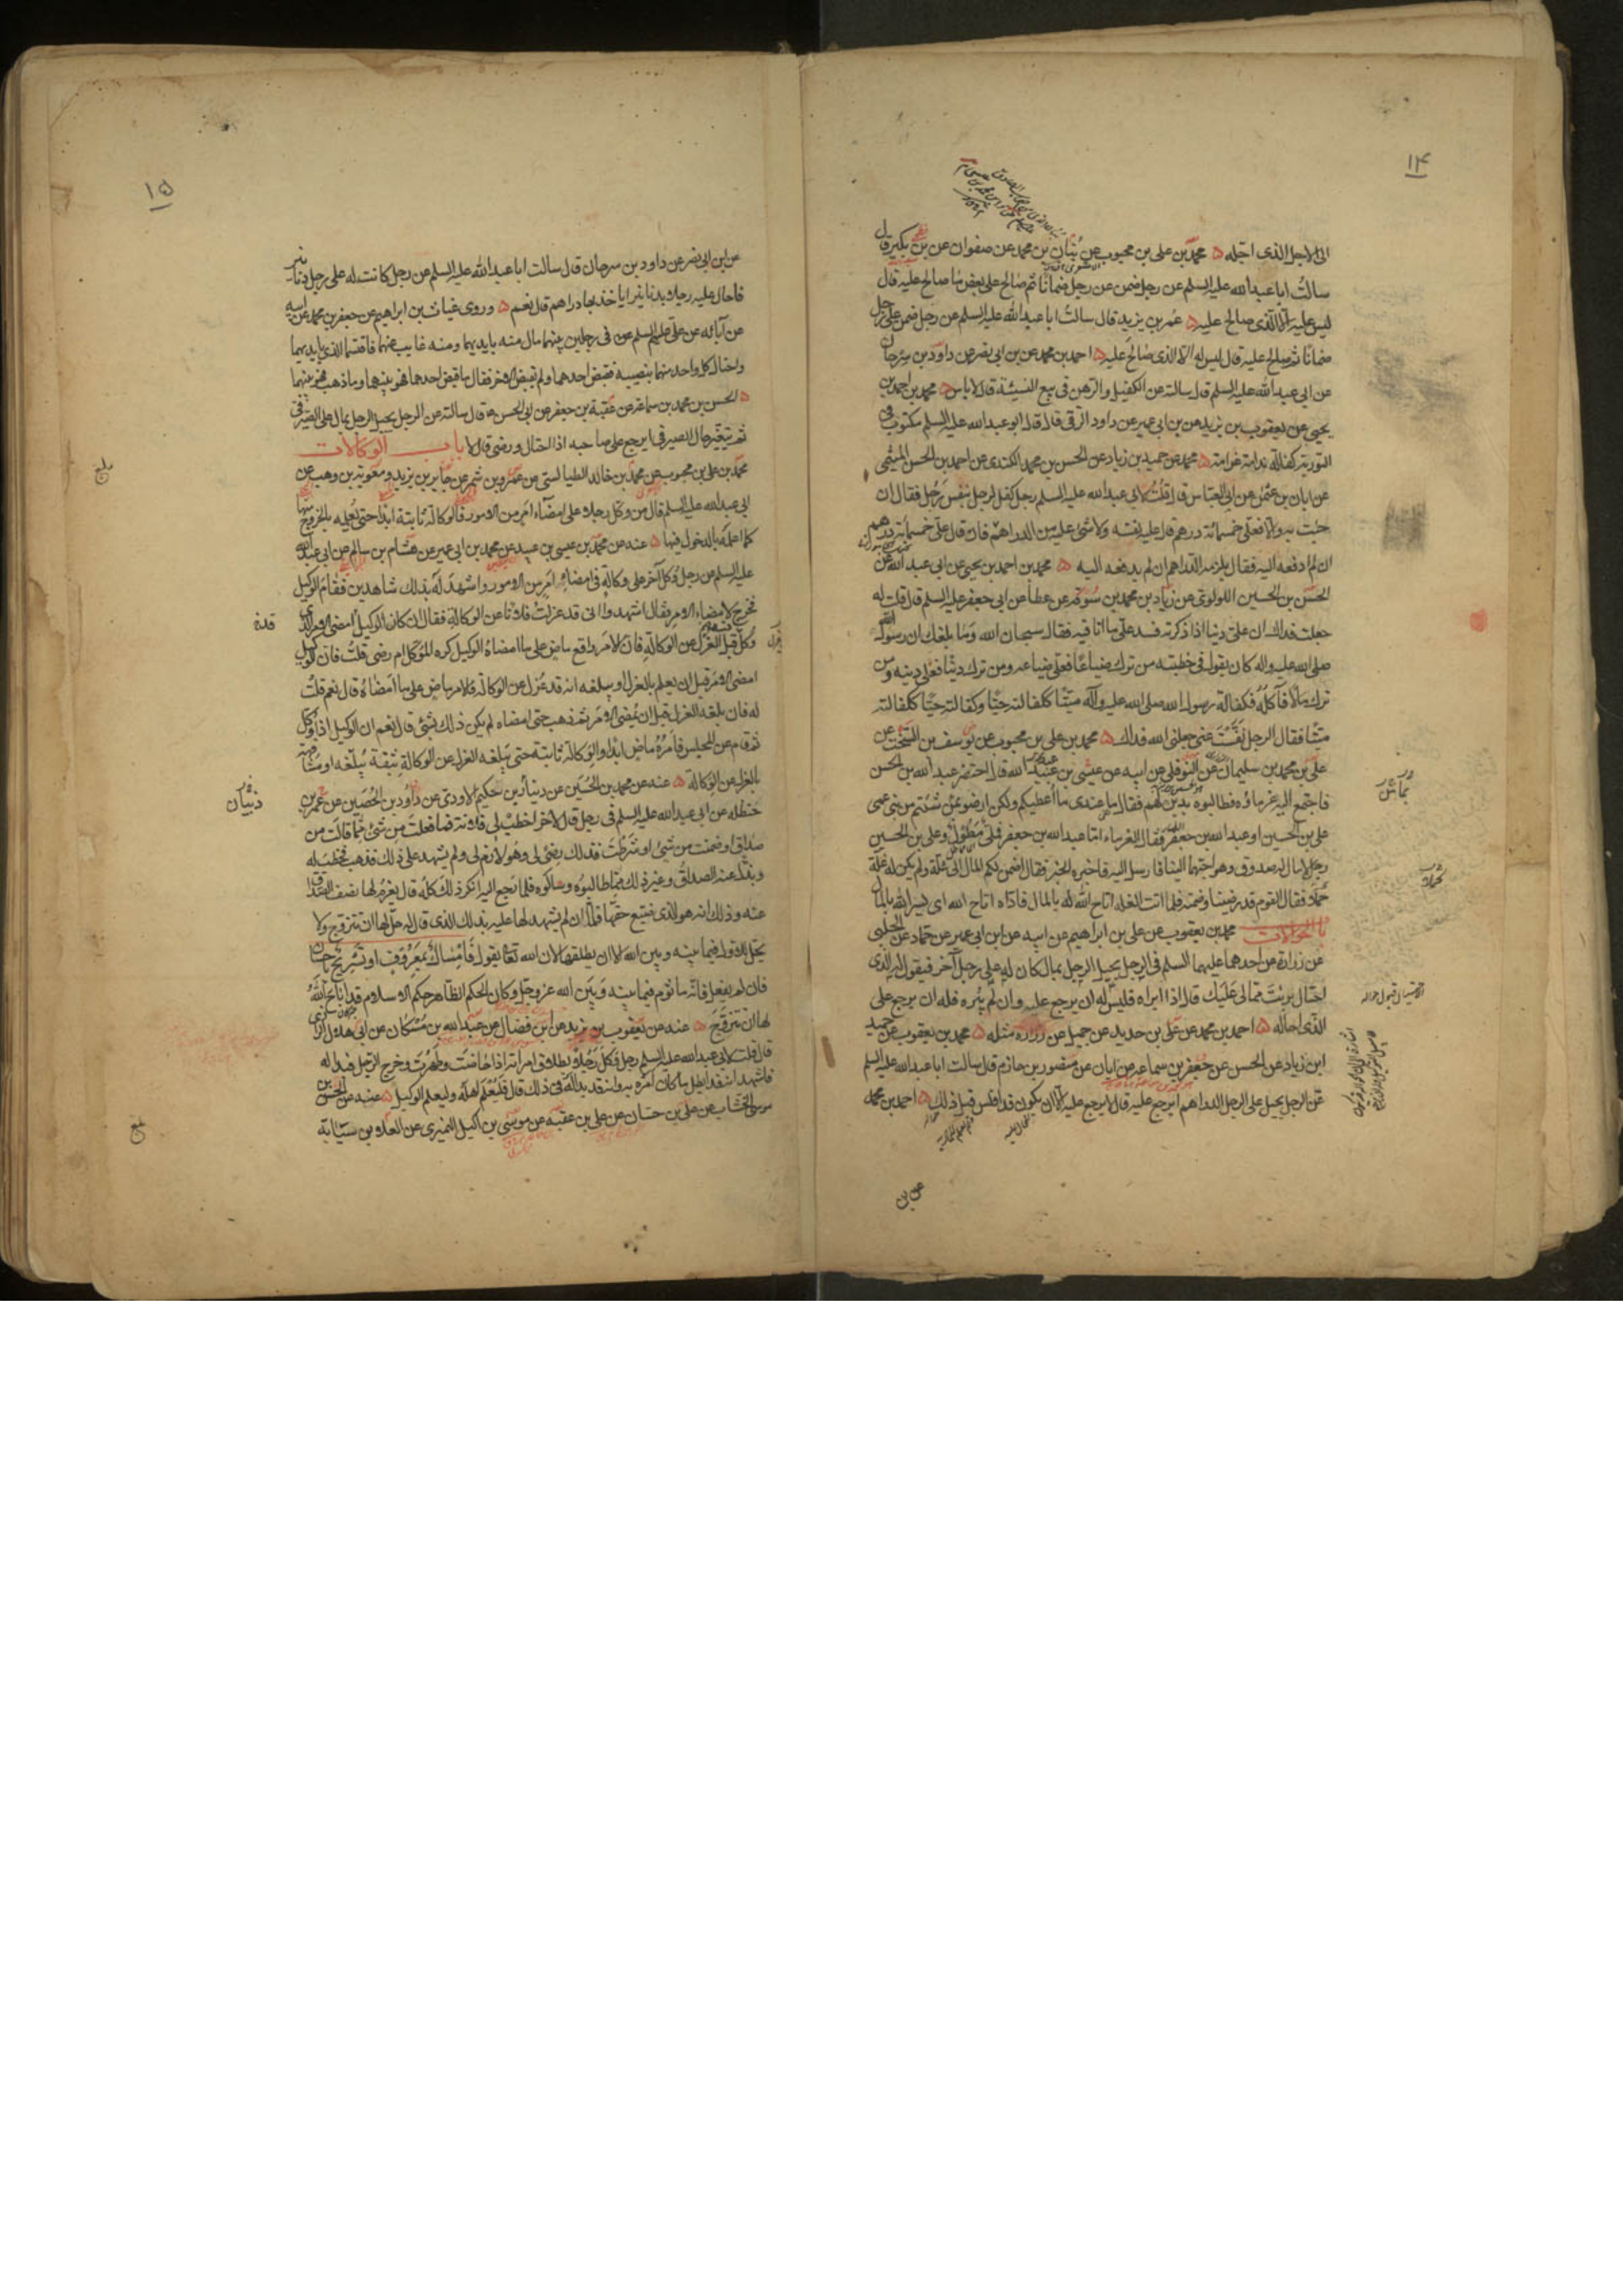 ١٤
الى الاجل الذى اجله ه محمد بن على بن محبوب عن بنان بن محمد عن صفوان عن بن بكير قال
سالت ابا عبد الله عليه السلم عن رجل ضمن عن رجل ضمانا ثم صالح على بعض ما صالح عليه قال
ليس عليه الا الذى صالح عليه ه عمر بن يزيد قال سالت ابا عبد الله عليه السلم عن رجل ضمن على رجل
ضمانا ثم صالح عليه قال ليس له الا الذى صالح عليه ه احمد بن محمد عن بن ابى نصر عن داود بن سرحان
عن ابى عبد الله عليه السلم قال سالته عن الكفيل والرهن فى بيع النسيئة قال لا باس ه محمد بن احمد بن
يحيى عن يعقوب بن يزيد عن بن ابى عمير عن داود الرقى قال قال ابو عبد الله عليه السلم مكتوب فى
التورية كفالة ندامة غرامة ه محمد عن حميد بن زياد عن الحسن بن محمد الكندى عن احمد بن الحسن الميثمى
عن ابان بن عثمن عن ابى العباس قال قلت لابى عبد الله عليه السلم رجل كفل لرجل بنفس رجل فقال ان
جئت به والا فعلى خمسمائة درهم قال عليه نفسه ولا شئ عليه من الدراهم فان قال على خمسمائة درهم
ان لم ادفعه اليه فقال يلزمه الدراهم ان لم يدفعه اليه ه محمد بن احمد بن يحيى عن ابى عبد الله عن
الحسن بن الحسين اللؤلؤى عن زياد بن محمد بن سوقة عن عطا عن ابى جعفر عليه السلم قال قلت له
جعلت فداك ان على دينا اذا ذكرته فسد على ما انا فيه فقال سبحان الله وما بلغك ان رسول الله
صلى الله عليه واله كان يقول فى خطبته من ترك ضياعا فعلى ضياعه ومن ترك دينا فعلى دينه ومن
ترك مالا فاكله فكفالة رسول الله صلى الله عليه وآله ميتا ككفالته حيا وكفالته حيا ككفالته
ميتا فقال الرجل نفست عنى جعلنى الله فداك ه محمد بن على بن محبوب عن يوسف بن السخت عن
على بن محمد بن سليمان عن النوفلى عن ابيه عن عيسى بن عبيد الله قال احتضر عبد الله بن الحسن
فاجتمع اليه غرماؤه فطالبوه بدين لهم فقال ما عندى ما اعطيكم ولكن ارضوا بمن شئتم من بنى عمى
على بن الحسين او عبد الله بن جعفر فقال الغرماء اما عبد الله بن جعفر فملى مطول وعلى بن الحسين
رجل لا مال له صدوق وهو احبهما الينا فارسل اليه فاخبره الخبر فقال اضمن لكم المال الى غلة ولم يكن له غلة
تجملا فقال القوم قد رضينا وضمنه فلما اتت الغلة اتاح الله له بالمال فاداه اتاح الله اى يسر الله بالمال
باب الحوالات محمد بن يعقوب عن على بن ابراهيم عن ابيه عن ابن ابى عمير عن حماد عن الحلبى
عن زرارة عن احدهما عليهما السلم فى الرجل يحيل الرجل بمال كان له على رجل آخر فيقول له الذى
احتال برئت مما لى عليك قال اذا ابراه فليس له ان يرجع عليه وان لم يبره فله ان يرجع على
الذى احاله ه احمد بن محمد عن على بن حديد عن جميل عن زرارة مثله ه محمد بن يعقوب عن حميد
ابن زياد عن الحسن عن جعفر بن سماعه عن ابان عن منصور بن حازم قال سالت ابا عبد الله عليه السلم
عن الرجل يحيل على الرجل الدراهم ايرجع عليه قال لا يرجع عليه الا ان يكون قد افلس قبل ذلك ه احمد بن محمد
عن بن
١٥
عن ابن ابى نصر عن داود بن سرحان قال سالت ابا عبد الله عليه السلم عن رجل كانت له على رجل دنانير
فاحال عليه رجلا بدنانير اياخذ بها دراهم قال نعم ه وروى غياث بن ابراهيم عن جعفر بن محمد عن ابيه
عن آبائه عن على عليهم السلم فى رجلين بينهما مال منه بايديهما ومنه غايب عنهما فاقتسما الذى بايديهما
واحتال كل واحد منهما بنصيبه فقبض احدهما ولم يقبض الاخر فقال ما قبض احدهما فهو بينهما وما ذهب فهو بينهما
ه الحسن بن محمد بن سماعة عن عقبة بن جعفر عن ابى الحسن ع قال سالته عن الرجل يحيل الرجل بمال على الصيرفى
ثم يتغير حال الصيرفى ايرجع على صاحبه اذا احتال ورضى قال لا باب الوكالات
محمد بن على بن محبوب عن محمد بن خالد الطيالسى عن عمرو بن شمر عن جابر بن يزيد ومعوية بن وهب عن
ابى عبد الله عليه السلم قال من وكل رجلا على امضاء امر من الامور فالوكالة ثابتة ابدا حتى يعلمه بالخروج منها
كما اعلمه بالدخول فيها ه عنه عن محمد بن عيسى بن عبيد عن محمد بن ابى عمير عن هشام بن سالم عن ابى عبد الله
عليه السلم عن رجل وكل آخر على وكالة فى امضاء امر من الامور واشهد له بذلك شاهدين فقام الوكيل
فخرج لامضاء الامر فقال اشهدوا انى قد عزلت فلانا عن الوكالة فقال ان كان الوكيل امضى الامر الذى
وكل قبل العزل عن الوكالة فان الامر واقع ماض على ما امضاه الوكيل كره الموكل ام رضى قلت فان الوكيل
امضى الامر قبل ان يعلم بالعزل او يبلغه انه قد عزل عن الوكالة فالامر ماض على ما امضاه قال نعم قلت
له فان بلغه العزل قبل ان يمضى الامر ثم ذهب حتى امضاه لم يكن ذلك بشئ قال نعم ان الوكيل اذا وكل
ثم قام عن المجلس فامره ماض ابدا والوكالة ثابتة حتى يبلغه العزل عن الوكالة بثقة يبلغه او مشافهة
بالعزل عن الوكالة ه عنه عن محمد بن الحسين عن دينار بن حكيم الاودى عن داود بن الحصين عن عمر بن
حنظله عن ابى عبد الله عليه السلم فى رجل قال لاخر اخطب لى فلانة فما فعلت من شئ مما قالت من
صداق او ضمنت من شئ او شرطت فذلك رضى لى وهو لازم لى ولم يشهد على ذلك فذهب فخطب له
وبذل عنه الصداق وغير ذلك مما طالبوه وسالوه فلما رجع اليه انكر ذلك كله قال يغرم لها نصف الصداق
عنه وذلك انه هو الذى ضيع حقها فلما ان لم يشهد لها عليه بذلك الذى قال له حل لها ان تتزوج ولا
يحل للاول فيما بينه وبين الله الا ان يطلقها لان الله تعالى يقول فامساك بمعروف او تسريح باحسان
فان لم يفعل فانه ماثوم فيما بينه وبين الله عز وجل وكان الحكم الظاهر حكم الاسلام قد اباح الله
لها ان تتزوج ه عنه عن يعقوب بن يزيد عن ابن فضال عن عبد الله بن مسكان عن ابى هلال الرازى
قال قلت لابى عبد الله عليه السلم رجل وكل رجلا بطلاق امراته اذا حاضت وطهرت وخرج الرجل فبدا له
فاشهد انه قد ابطل ما كان امره به وانه قد بدا له فى ذلك قال فليعلم اهله وليعلم الوكيل ه عنه عن الحسن بن
موسى الخشاب عن على بن حسان عن على بن عقبه عن موسى بن اكيل النميرى عن العلاء بن سيابة